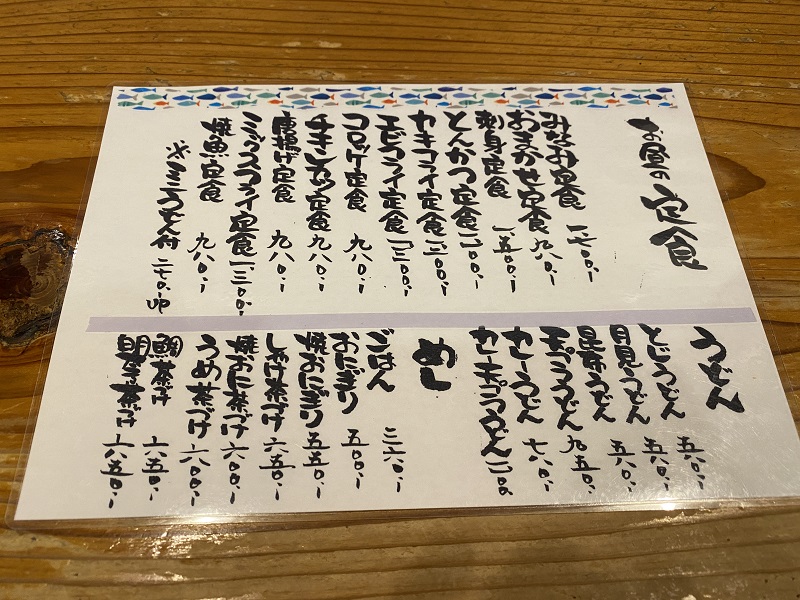 お昼の定食
みなみ定食 一、七〇〇.ー
おまかせ定食 九八〇.ー
刺身定食 一、五〇〇.ー
とんかつ定食 一、二〇〇.ー
カキフライ定食 一、二〇〇.ー
エビフライ定食 一、三〇〇.ー
コロッケ定食 九八〇.ー
チキンカツ定食 九八〇.ー
唐揚げ定食 九八〇.ー
ミックスフライ定食 一、三〇〇.ー
焼魚定食 九八〇.ー
※ミニうどん付 二七〇.up
うどん 五〇〇.ー
とじうどん 五八〇.ー
月見うどん 五八〇.ー
昆布うどん
天ぷらうどん 九五〇.ー
カレーうどん 七八〇.ー
カレー天ぷらうどん
めし
ごはん 二六〇.ー
おにぎり 五〇〇.ー
焼おにぎり 五五〇.ー
しゃけ茶づけ 六五〇.ー
焼おに茶づけ 六〇〇.ー
うめ茶づけ 六〇〇.ー
鯛茶づけ 六五〇.ー
明太茶づけ 六五〇.ー